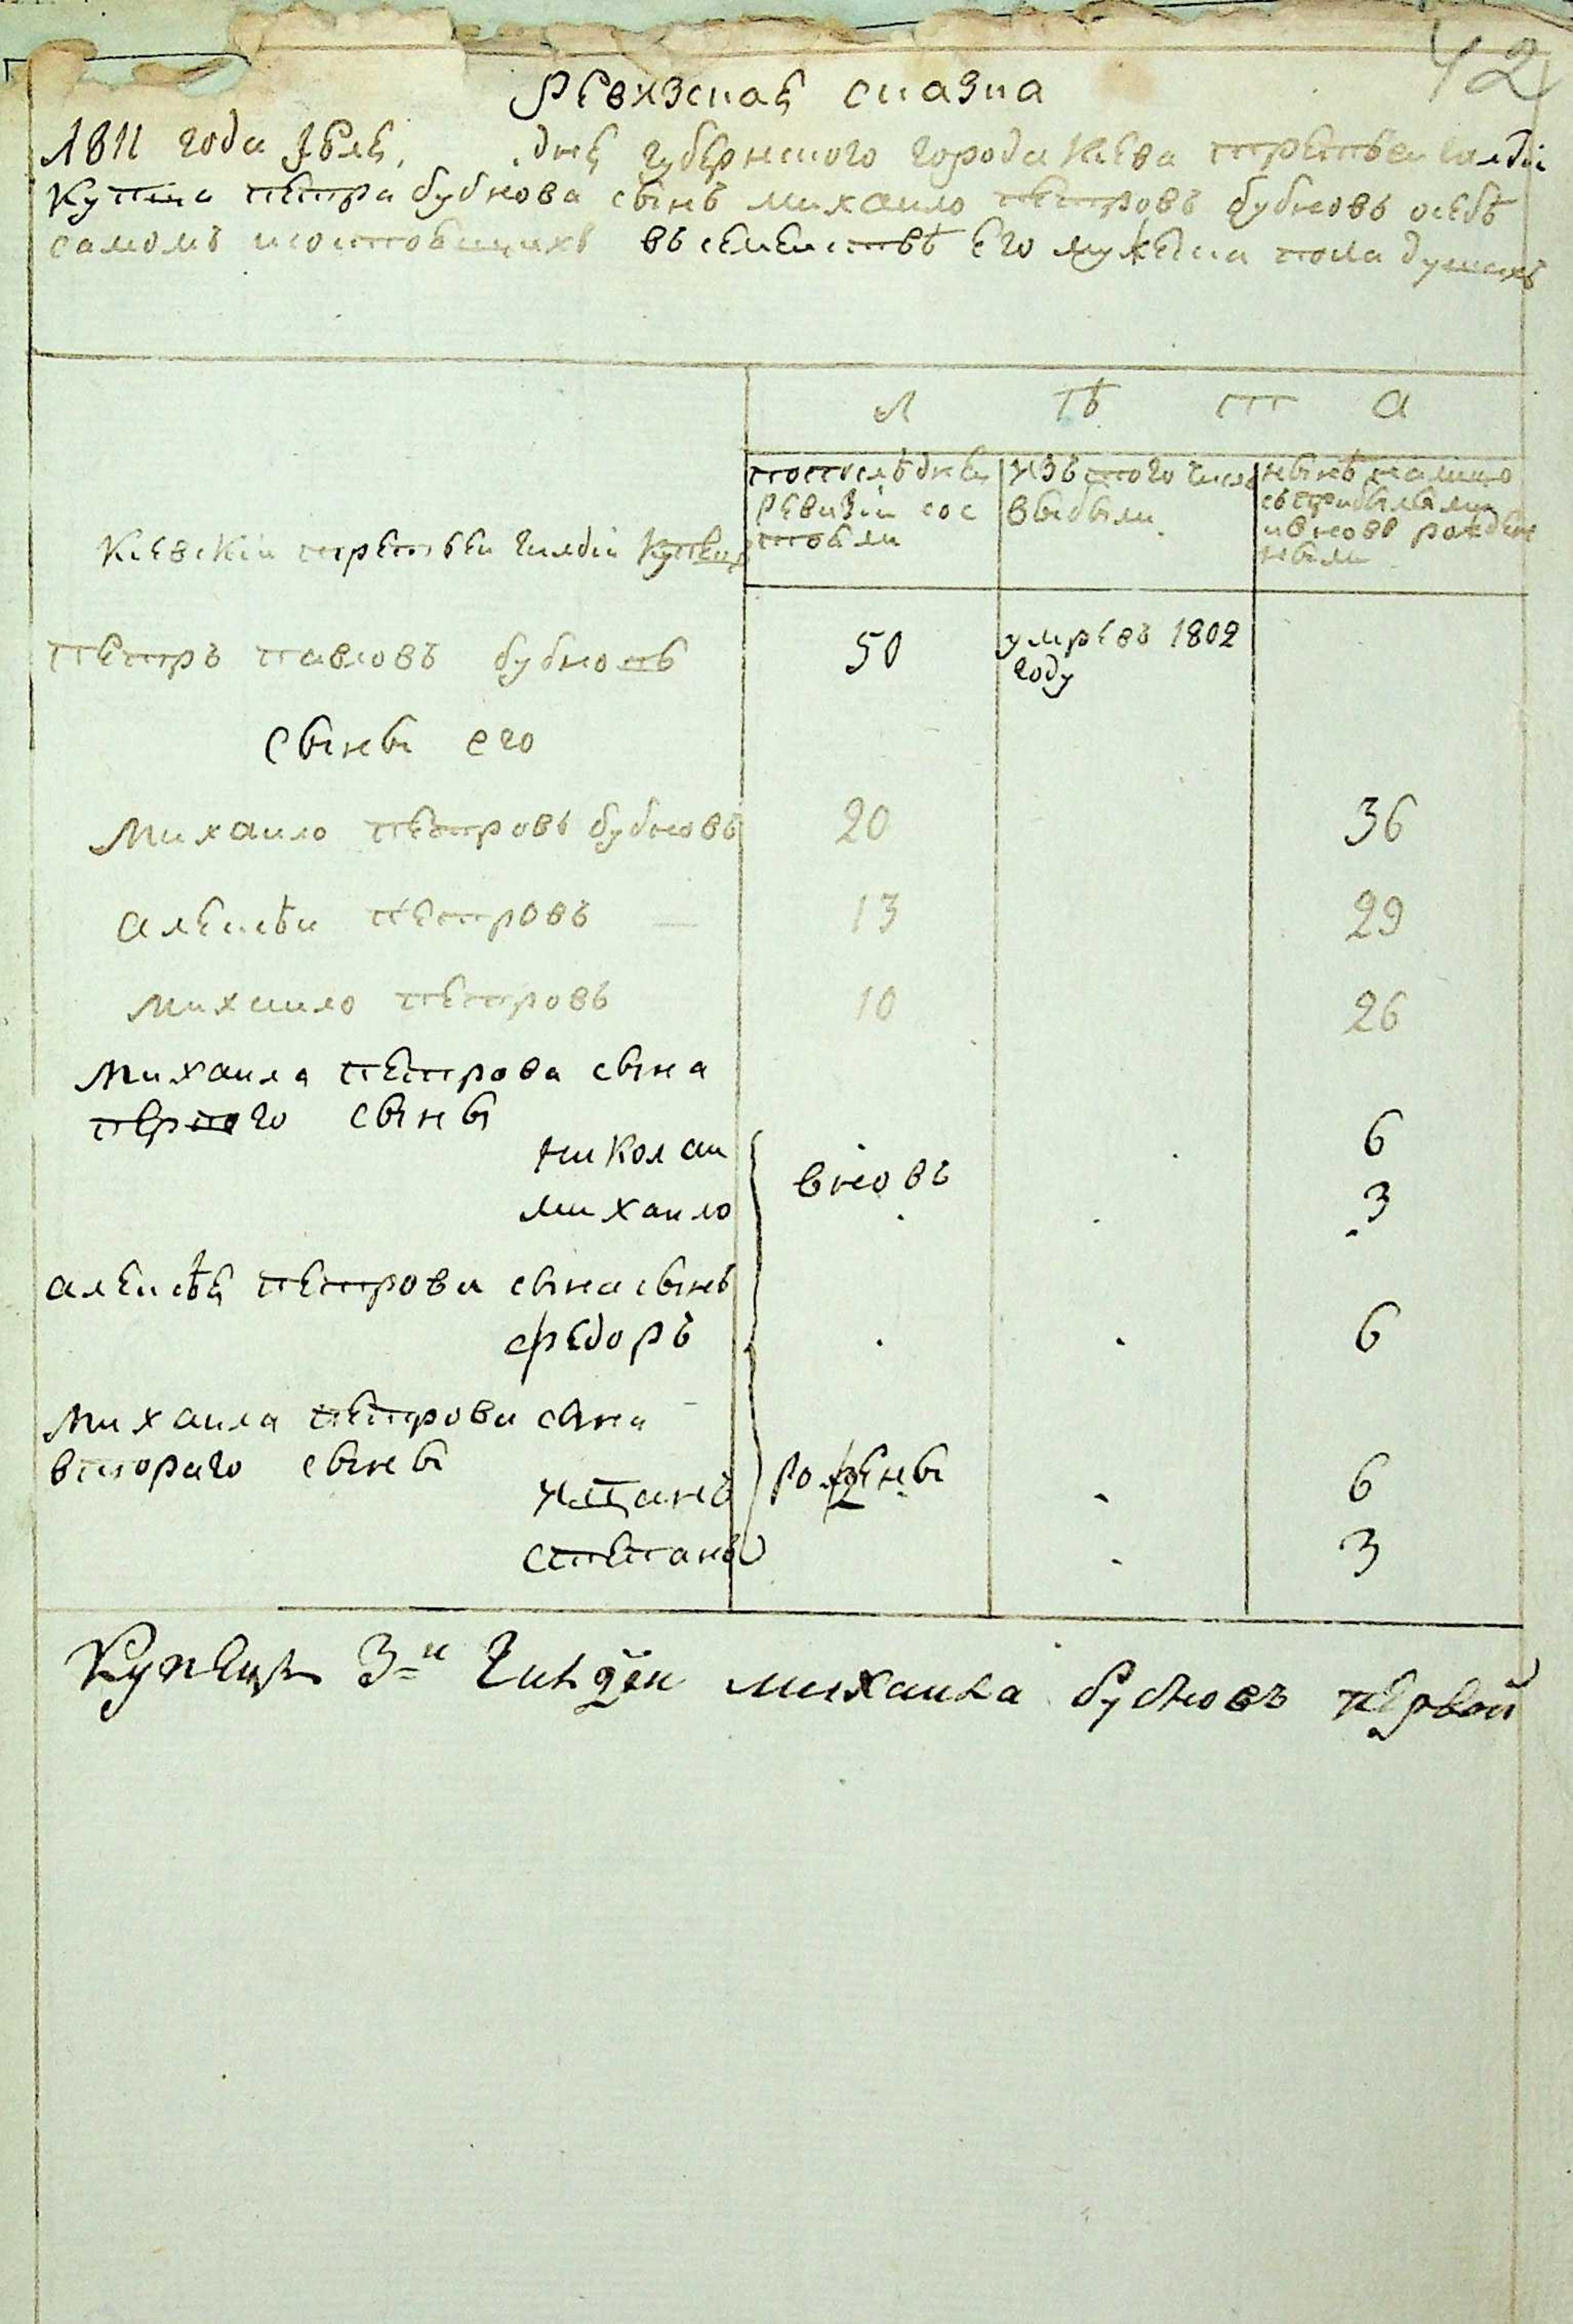 42
Ревизская сказка
1811 года Июля дня губернского города Киева третьей гилдіи
купца Петра бубнова сынъ михаило Петровъ бубновъ осебѣ
самомъ исостоящихъ въ семействѣ его мужеска пола душахъ
Л Ѣ Т А
Попослѣдней ревизіи состояли
Изъ того числа выбыли
нынѣ налицо съ прибылыми ивновь рожденными
Кіевскіи третьеи гилдіи купецъ
Петръ Павловъ бубновъ 50 умре въ 1802 году
Сыны его
Михаило Петровъ бубновъ 20 36
Алексѣи Петровъ 13 29
Михаило Петровъ 10 26
Михаила Петрова сына
первого сыны
Николаи вновь 6
михаило 3
Алексѣя Петрова сына сынъ
Федоръ 6
Михаила Петрова сына
втораго сыны
рождены 6
Степанъ 3
Купецъ 3-и Гилдіи михаила бубновъ первой